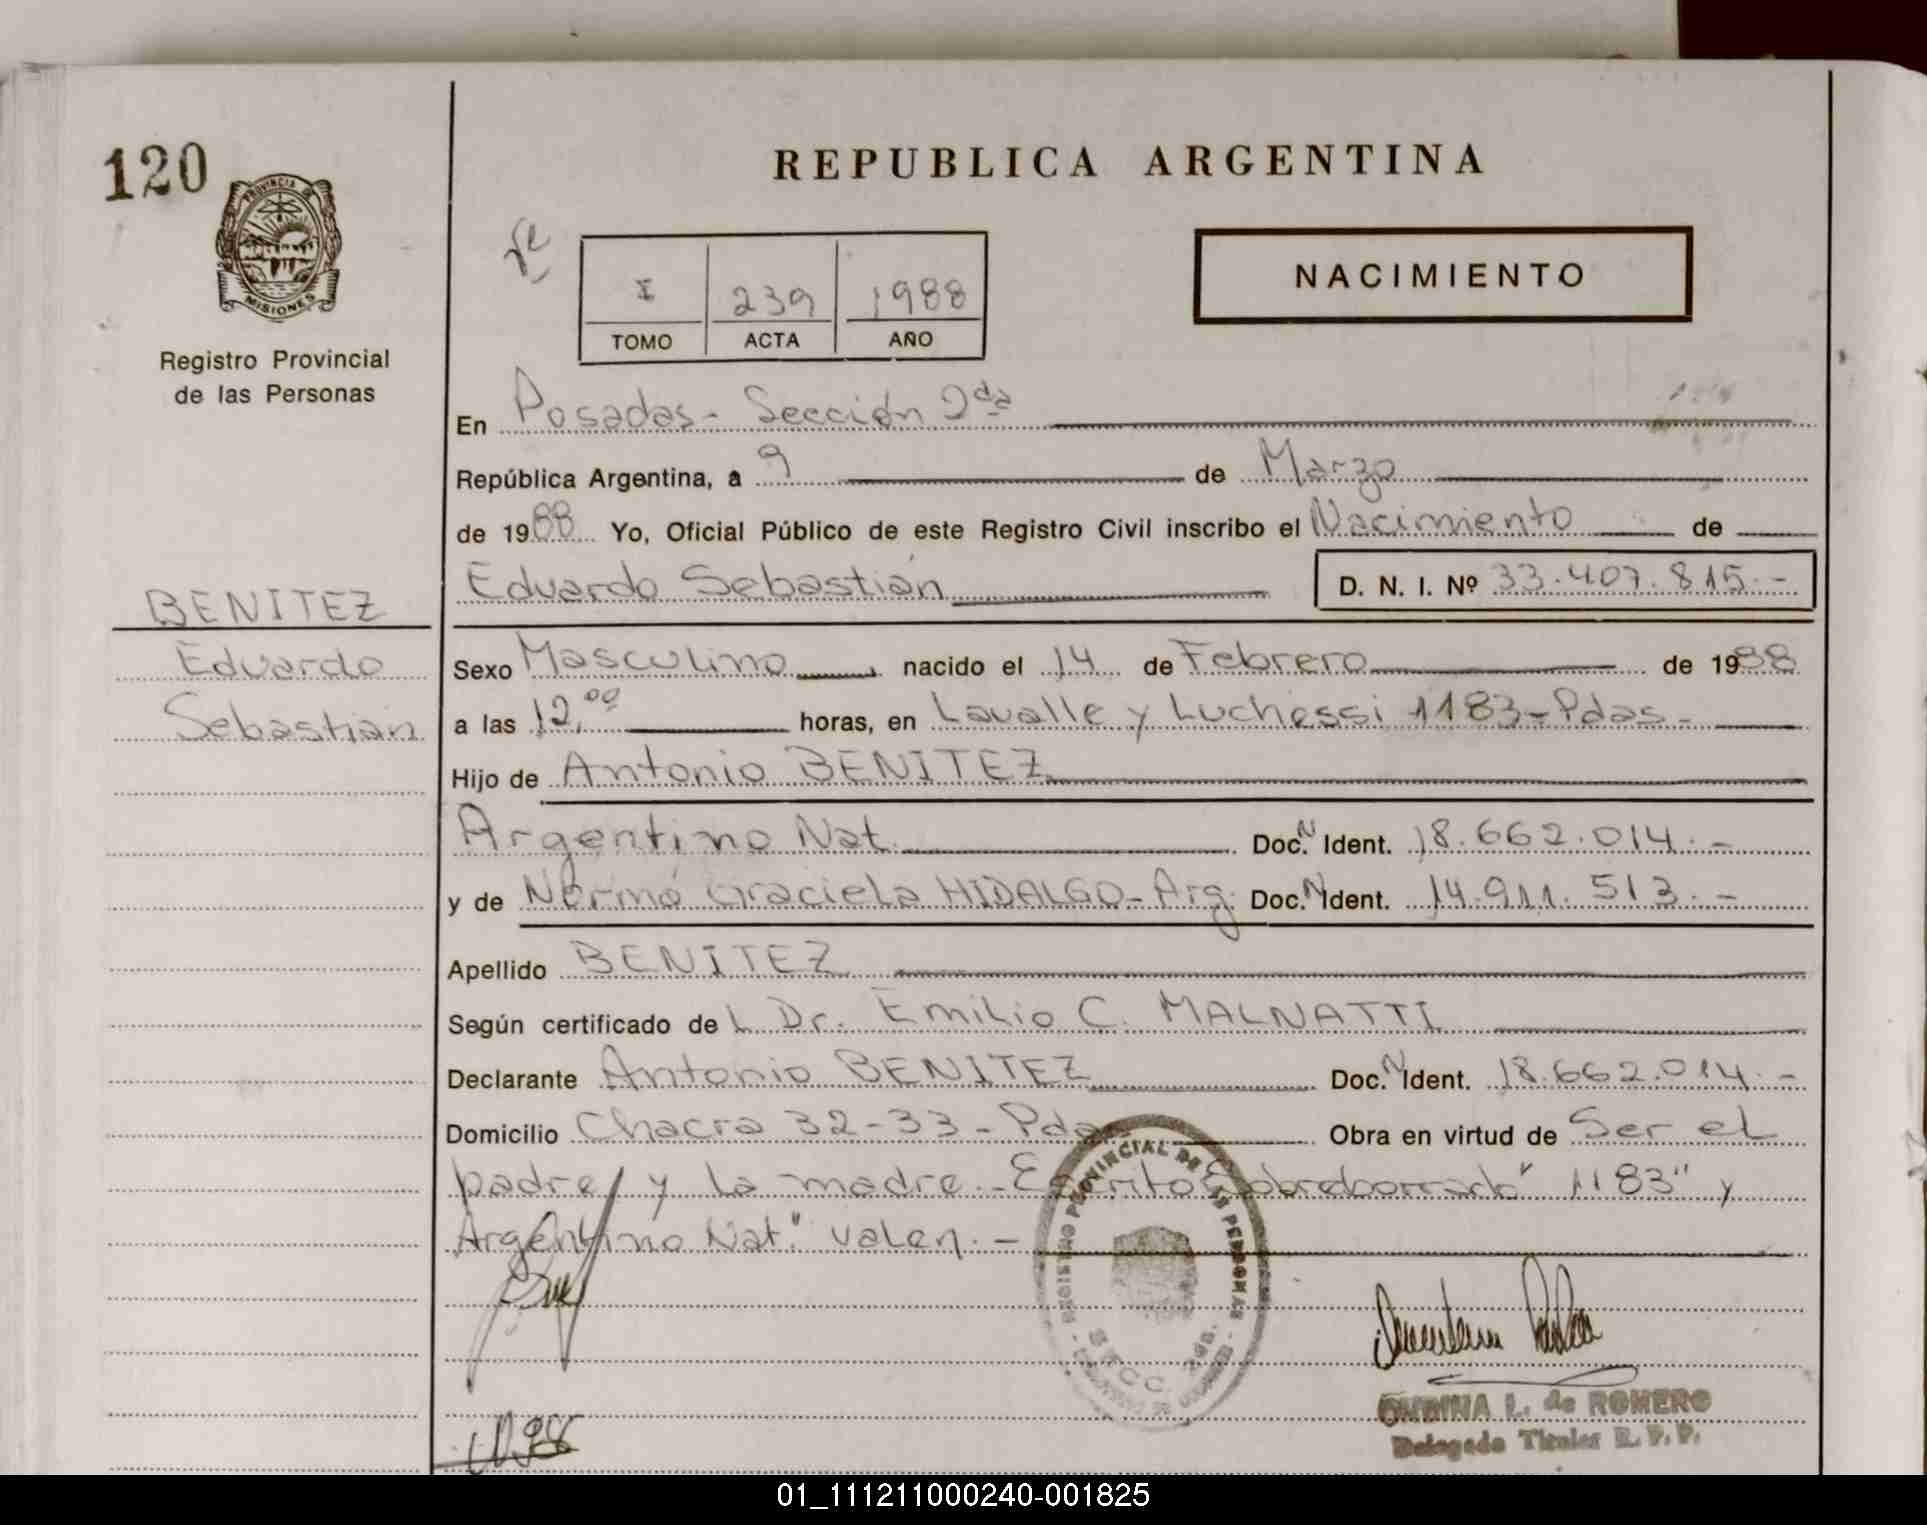 120
PROVINCIA DE
MISIONES
Registro Provincial
de las Personas
REPUBLICA ARGENTINA
NACIMIENTO
I 239 1988
TOMO ACTA AÑO
En Posadas - Sección 2da
República Argentina, a 9 de Marzo
de 1988 Yo, Oficial Público de este Registro Civil inscribo el Nacimiento de
Eduardo Sebastián D. N. I. Nº 33.407.815.-
BENITEZ
Eduardo
Sebastián
Sexo Masculino nacido el 14 de Febrero de 1988
a las 12,00 horas, en Lavalle y Luchessi 1183-Pdas-
Hijo de Antonio BENITEZ
Argentino Nat. Doc.N Ident. 18.662.014.-
y de Norma Graciela HIDALGO-Arg. Doc.N Ident. 14.911.513.-
Apellido BENITEZ
Según certificado de L Dr. Emilio C. MALNATTI
Declarante Antonio BENITEZ Doc.N Ident. 18.662.014.-
Domicilio Chacra 32-33-Pdas Obra en virtud de Ser el
padre y la madre.-Escrito Sobreborrado "1183" y
Argentino Nat." valen.-
REGISTRO PROVINCIAL DE LAS PERSONAS
SECC. 2da.
ONDINA L. de ROMERO
Delegada Titular R. P. P.
01_111211000240-001825